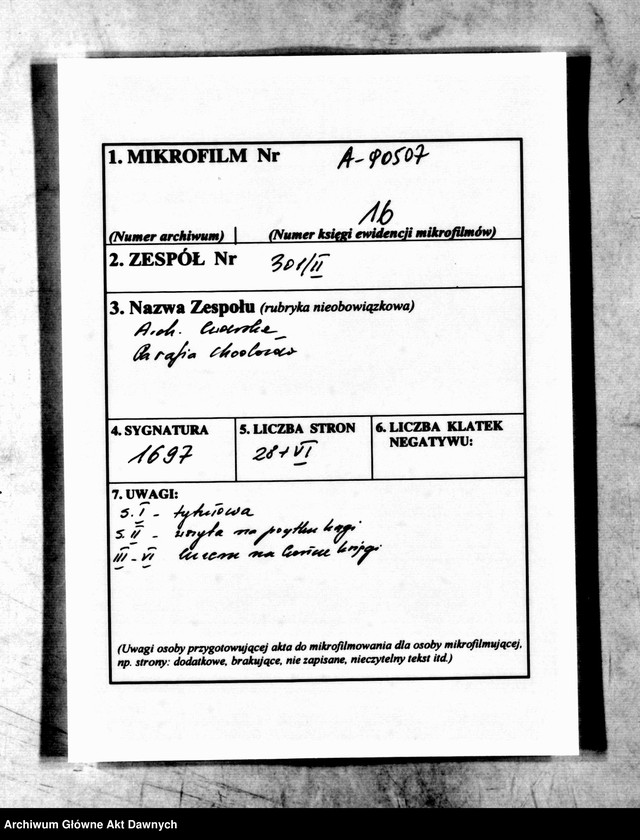 1. MIKROFILM Nr A-90507
16
(Numer archiwum) (Numer księgi ewidencji mikrofilmów)
2. ZESPÓŁ Nr 301/II
3. Nazwa Zespołu (rubryka nieobowiązkowa)
Arch.
Parafia
4. SYGNATURA
1697
5. LICZBA STRON
28+VI
6. LICZBA KLATEK
NEGATYWU:
7. UWAGI:
s. I - tytułowa
s. II - na
III-VI na księgi
(Uwagi osoby przygotowującej akta do mikrofilmowania dla osoby mikrofilmującej,
np. strony: dodatkowe, brakujące, nie zapisane, nieczytelny tekst itd.)
Archiwum Główne Akt Dawnych